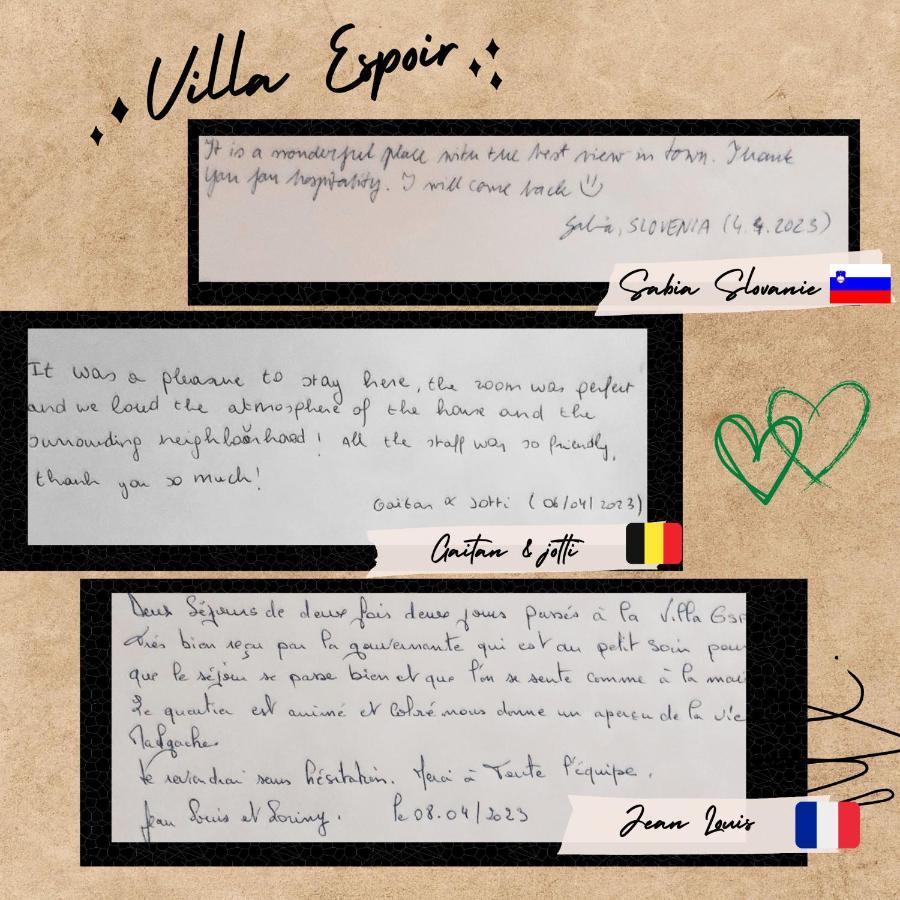 Villa Espoir
It is a wonderful place with the best view in town. Thank
you for hospitality. I will come back
Sabia, SLOVENIA (4.4.2023)
Sabia Slovanie
It was a pleasure to stay here, the room was perfect
and we loved the atmosphere of the house and the
surrounding neighbourhood! All the staff was so friendly,
thank you so much!
Gaitan & Jotti (06/04/2023)
Gaitan & jotti
Deux Séjours de deux fois deux jours passés à la Villa Esp
Très bien reçu par la gouvernante qui est au petit soin pour
que le séjour se passe bien et que l'on se sente comme à la mai
Le quartier est animé et coloré nous donne un aperçu de la vie
Malgache.
Je reviendrai sans hésitation. Merci à Toute l'équipe.
Jean Louis et . le 08.04/2023
Jean Louis